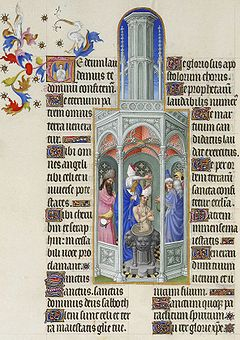 Te deum lau
damus te
dominum confitem
Te eternum pa
trem omnis
terra venera
tur
Tibi om
nes angeli
tibi celi et u
niverse pote
states.
Tibi cheru
bin et serap
hin: incessa
bili voce pro
clamant.
Sanctus
Sanctus. sanctus
dominus deus sabaoth
Pleni sunt celi et ter
ra maiestatis glorie tue.
Te gloriosus apo
stolorum chorus.
Te prophetarum
laudabilis numerus
Te mar
tirum candi
datus
terrarum
sancta confi
tetur ecclesia
Patrem
immense ma
iestatis.
nicum filium.
Sanctum quoque pa
raclitum spiritum
Tu rex glorie xpe.